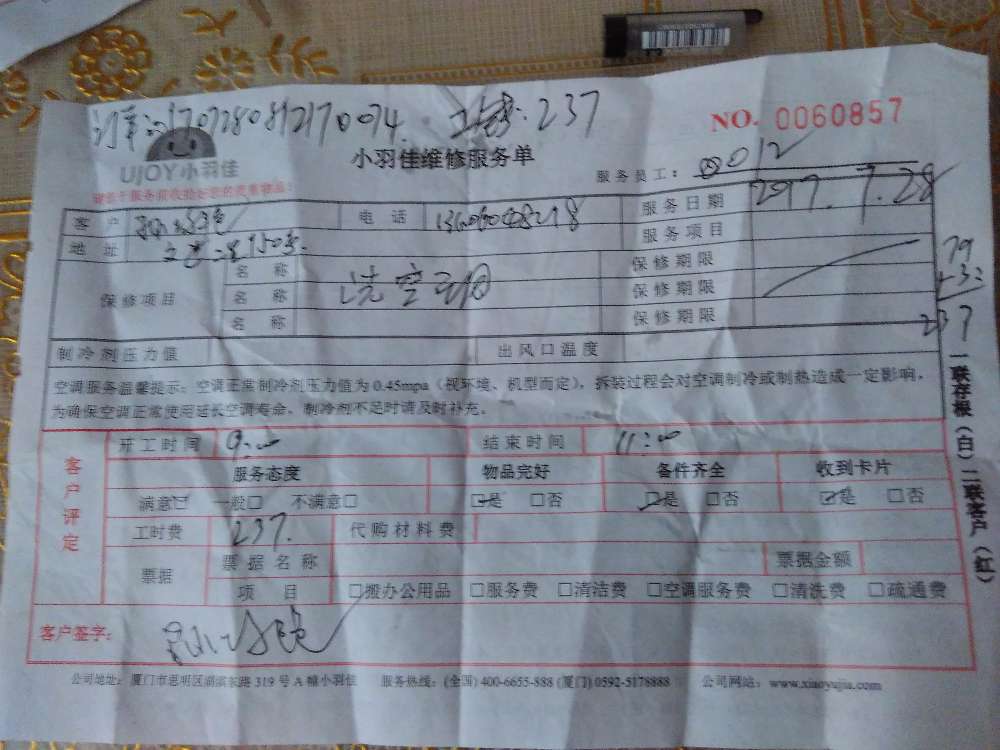 1707280812170074 : 237
NO. 0060857
UJOY小羽佳
小羽佳维修服务单
服务员工: 0012
客户 电话 服务日期 2017.7.28
地址 服务项目
保修项目 名称 洗空调 保修期限
名称 保修期限
名称 保修期限
79
237
制冷剂压力值 出风口温度
空调服务温馨提示:空调正常制冷剂压力值为0.45mpa(视环境、机型而定),拆装过程会对空调制冷或制热造成一定影响,
为确保空调正常使用延长空调寿命、制冷剂不足时请及时补充。
一联存根(白)二联客户(红)
客户评定
开工时间 9:00 结束时间 11:00
服务态度 物品完好 备件齐全 收到卡片
满意☑ 一般□ 不满意□ ☑是 □否 ☑是 □否 ☑是 □否
工时费 237. 代购材料费
票据 票据名称 票据金额
项目 □搬办公用品 □服务费 □清洁费 □空调服务费 □清洗费 □疏通费
客户签字:
公司地址:厦门市思明区湖滨东路319号A幢小羽佳 服务热线:(全国)400-6655-888(厦门)0592-5178888 公司网站:www.xiaoyujia.com